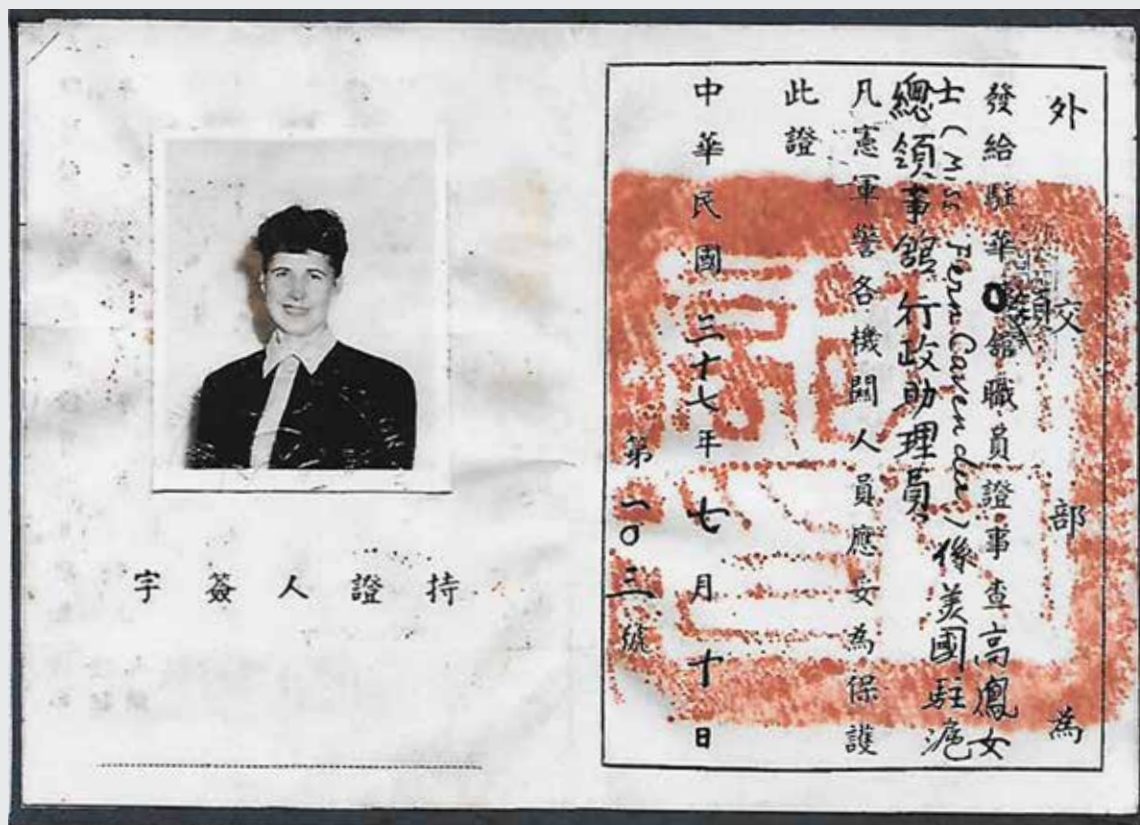 外交部為
發給駐華領館職員證事查高鳳女
士(Miss Fern Cavender)係美國駐滬
總領事館行政助理員
凡憲軍警各機關人員應妥為保護
此證
中華民國三十七年七月十日
第一〇三號
持證人簽字